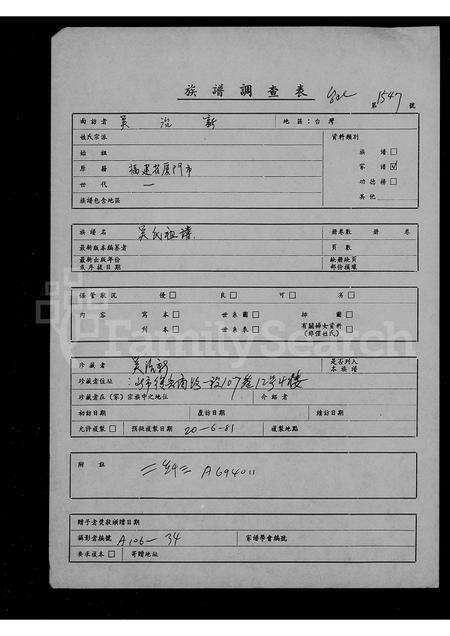 族譜調查表
第1547號
面訪者 吳 新 地區：台灣
姓氏宗派 資料類別
始祖 族譜□
原籍 福建省廈門市 家譜☑
世代 一 功德榜□
族譜包含地區 其他
族譜名 吳氏祖譜 冊卷數 冊 卷
最新版本編著者 頁數
最新出版年份 缺冊缺頁
或序技日期 部份損壞
保管狀況 優□ 良□ 可□ 劣□
內容 寫本□ 世系圖□ 神圖□
刊本□ 世系表□ 有關婦女資料□
FamilySearch
珍藏者 吳 是否列入本族譜
珍藏者住址 一段107巷12号4樓
珍藏者在(家)宗族中之地位 介紹者
初訪日期 復訪日期 續訪日期
允許複製□ 預擬複製日期 20-6-81 複製地點
附註 A694011
贈予者獎狀頒贈日期
攝影者編號 A106-34 家譜學會編號
要求複本□ 寄贈地址